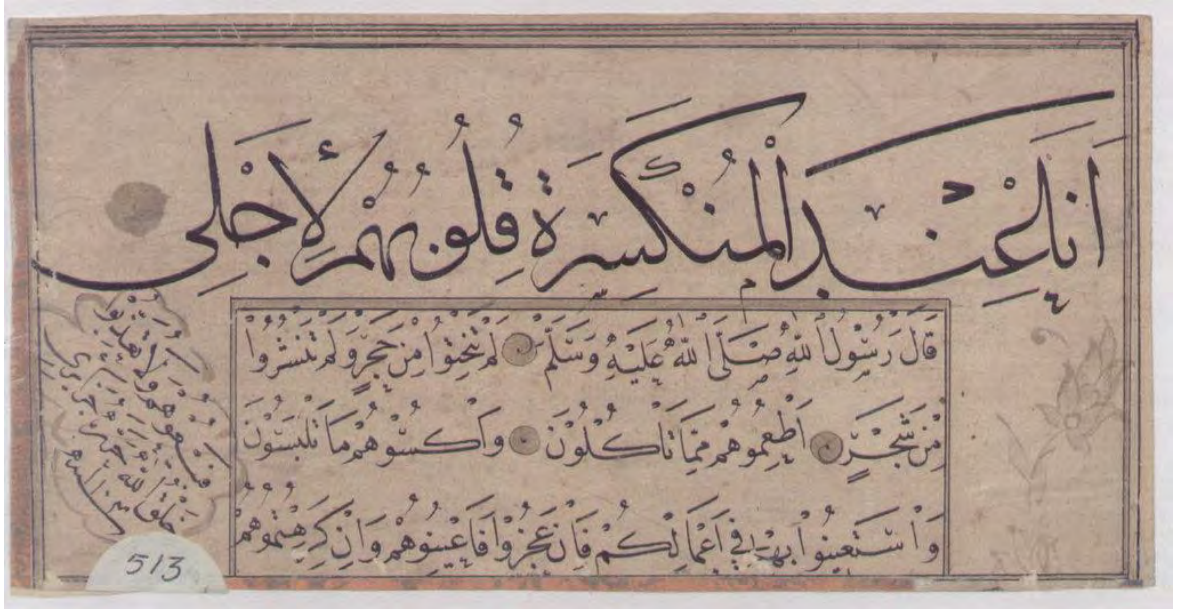 اَنَا عِنْدَ الْمُنْكَسِرَةِ قُلُوبُهُمْ لِأَجْلِي
قَالَ رَسُولُ اللّٰهِ صَلَّى اللّٰهُ عَلَيْهِ وَسَلَّمَ لَمْ يُنْحَتُوا مِنْ حَجَرٍ وَلَمْ تُنْشَرُوا
مِنْ شَجَرٍ اَطْعِمُوهُمْ مِمَّا تَأْكُلُونَ وَاكْسُوهُمْ مَا تَلْبَسُونَ
وَاسْتَعِينُوا بِهِمْ فِي اَعْمَالِكُمْ فَاِنْ عَجَزُوا فَاَعِينُوهُمْ وَاِنْ كَرِهْتُمُوهُمْ
فبيعوهم ولا تعذبوا
خلق الله
513